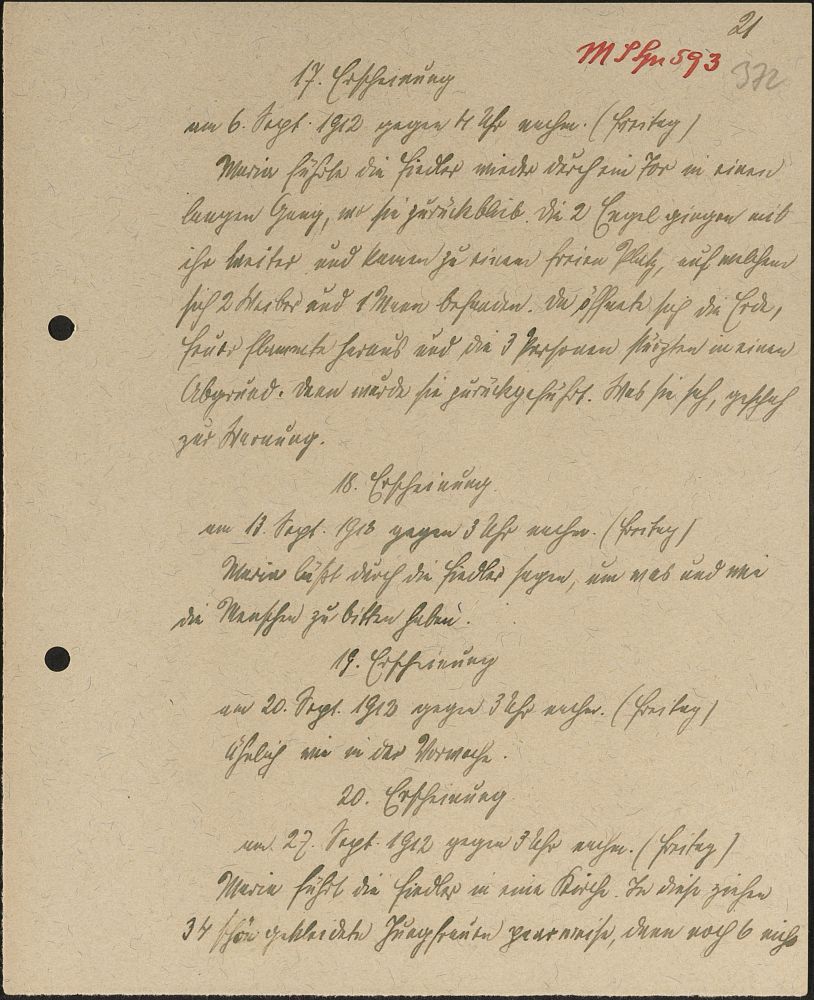 21
M S Gn 593
372
17. Erscheinung
am 6. Sept. 1912 gegen 4 Uhr nachm. (Freitag)
Maria führte die Fiedler wieder durch ein Tor in einen
langen Gang, wo sie zurückblieb. Die 2 Engel giengen mit
ihr weiter und kamen zu einem freien Platz, auf welchem
sich 2 Weiber und 1 Mann befanden. Da öffnete sich die Erde,
Feuer flammte heraus und die 3 Personen stürzten in einen
Abgrund. Dann wurde sie zurückgeführt. Was sie sah, geschah
zur Warnung.
18. Erscheinung
am 13. Sept. 1912 gegen 3 Uhr nachm. (Freitag)
Maria läßt durch die Fiedler sagen, um was und wie
die Menschen zu bitten haben.
19. Erscheinung
am 20. Sept. 1912 gegen 3 Uhr nachm. (Freitag)
Ähnlich wie in der Vorwoche.
20. Erscheinung
am 27. Sept. 1912 gegen 3 Uhr nachm. (Freitag)
Maria führt die Fiedler in eine Kirche. In diese ziehen
34 schön gekleidete Jungfrauen paarweise, dann noch 6 nicht